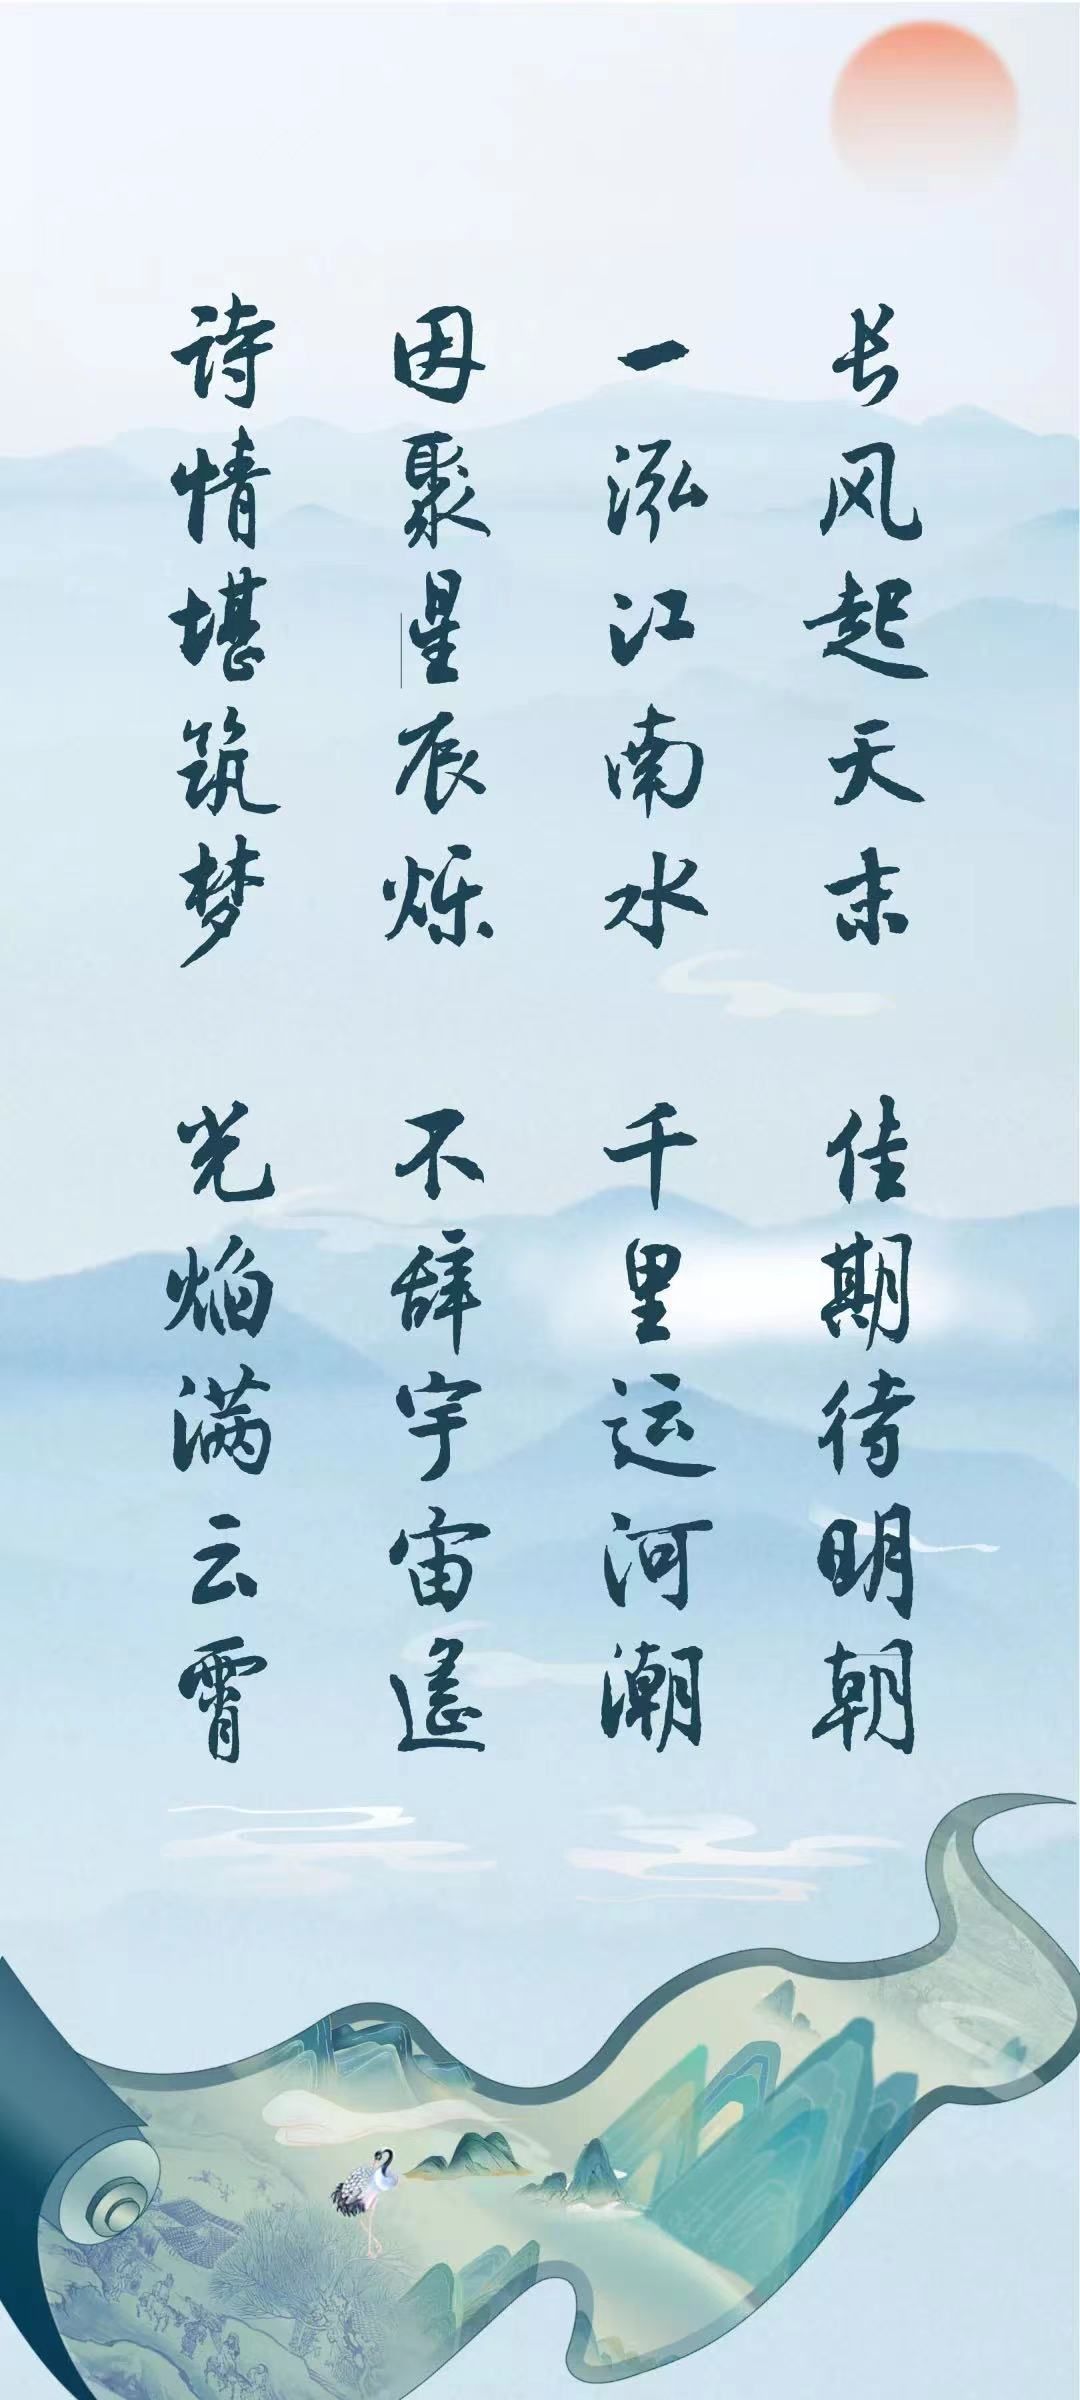 长风起天末 佳期待明朝
一泓江南水 千里运河潮
因聚星辰烁 不辞宇宙遥
诗情堪筑梦 光焰满云霄